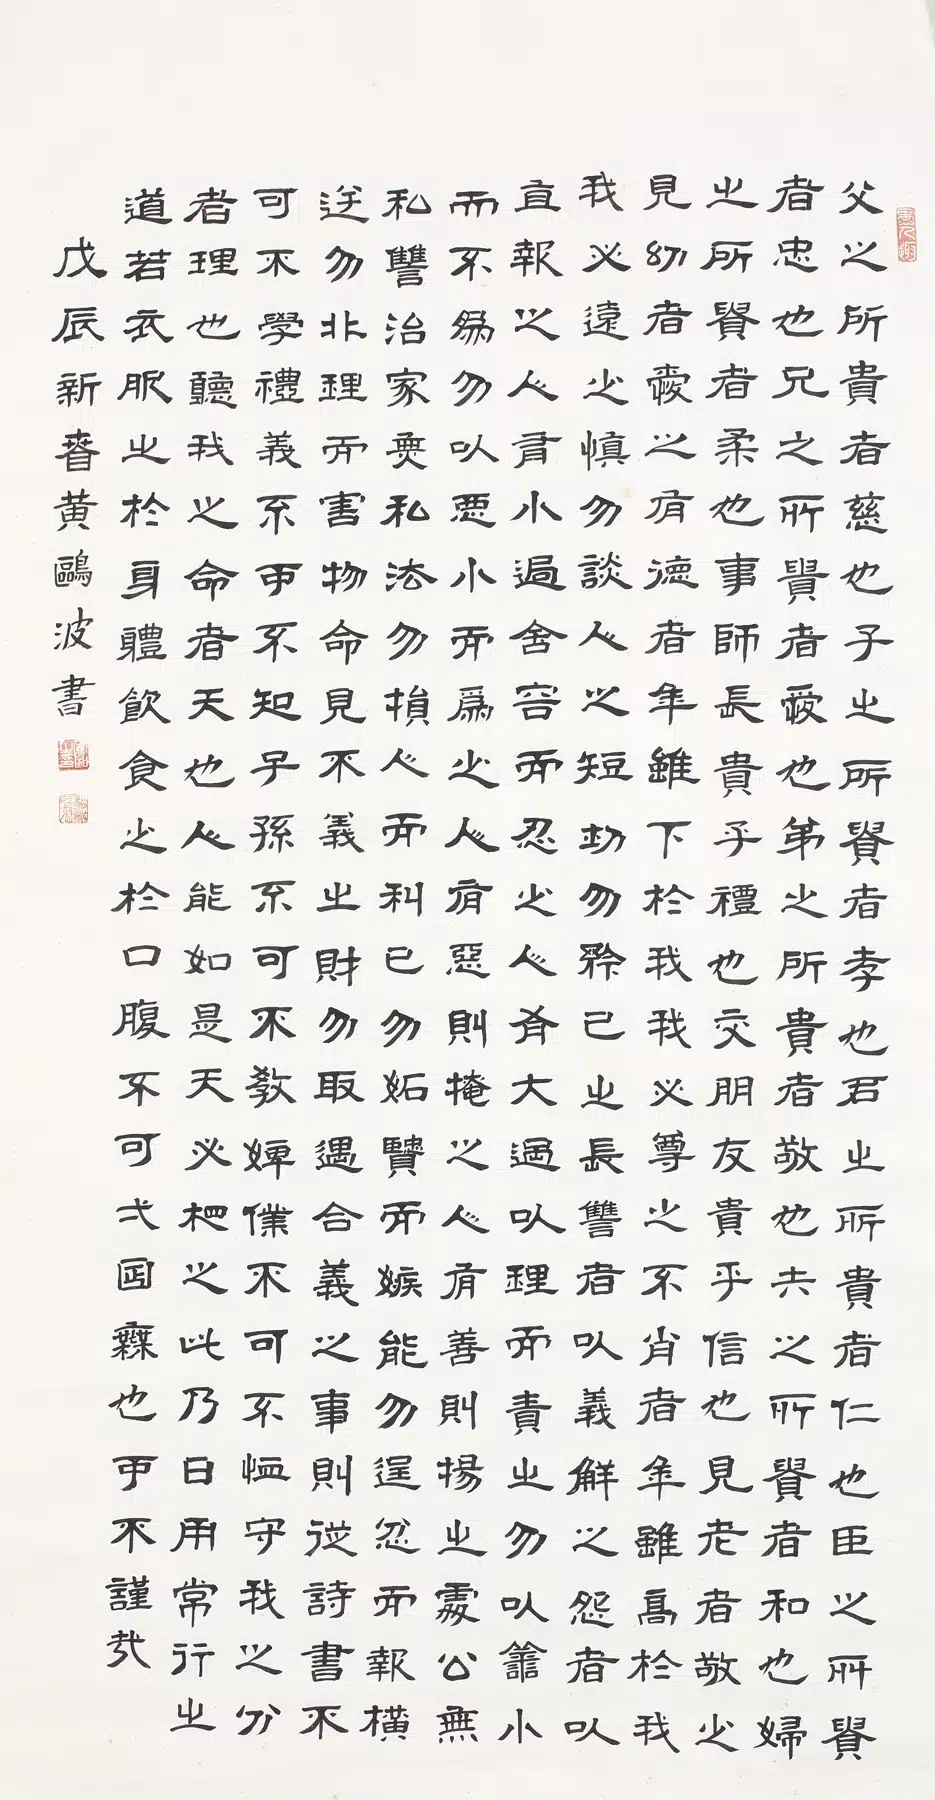 父之所貴者慈也子之所貴者孝也君之所貴者仁也臣之所貴
者忠也兄之所貴者愛也弟之所貴者敬也夫之所貴者和也婦
之所貴者柔也事師長貴乎禮也交朋友貴乎信也見老者敬之
見幼者愛之有德者年雖下於我我必尊之不肖者年雖高於我
我必遠之慎勿談人之短切勿矜己之長讐者以義解之怨者以
直報之人有小過含容而忍之人有大過以理而責之勿以善小
而不為勿以惡小而為之人有惡則掩之人有善則揚之處公無
私讐治家無私法勿損人而利己勿妬賢而嫉能勿逞忿而報橫
逆勿非理而害物命見不義之財勿取遇合義之事則從詩書不
可不學禮義不可不知子孫不可不教婢僕不可不恤守我之分
者理也聽我之命者天也人能如是天必相之此乃日用常行之
道若衣服之於身體飲食之於口腹不可弌日無也可不謹哉
戊辰新春黃鷗波書